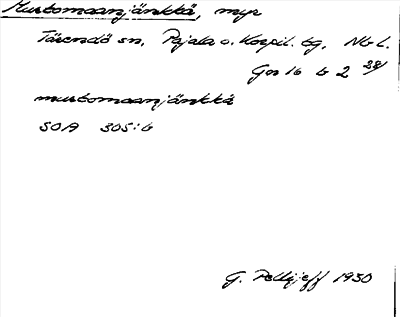 Mustomaanjänkkä, myr
Tärendö sn, Pajala o. Korpil. tg, Nb l.
Gos 16 b 2 28/
mustomaanjänkkä
SOA 305:6
G. Pellijeff 1930